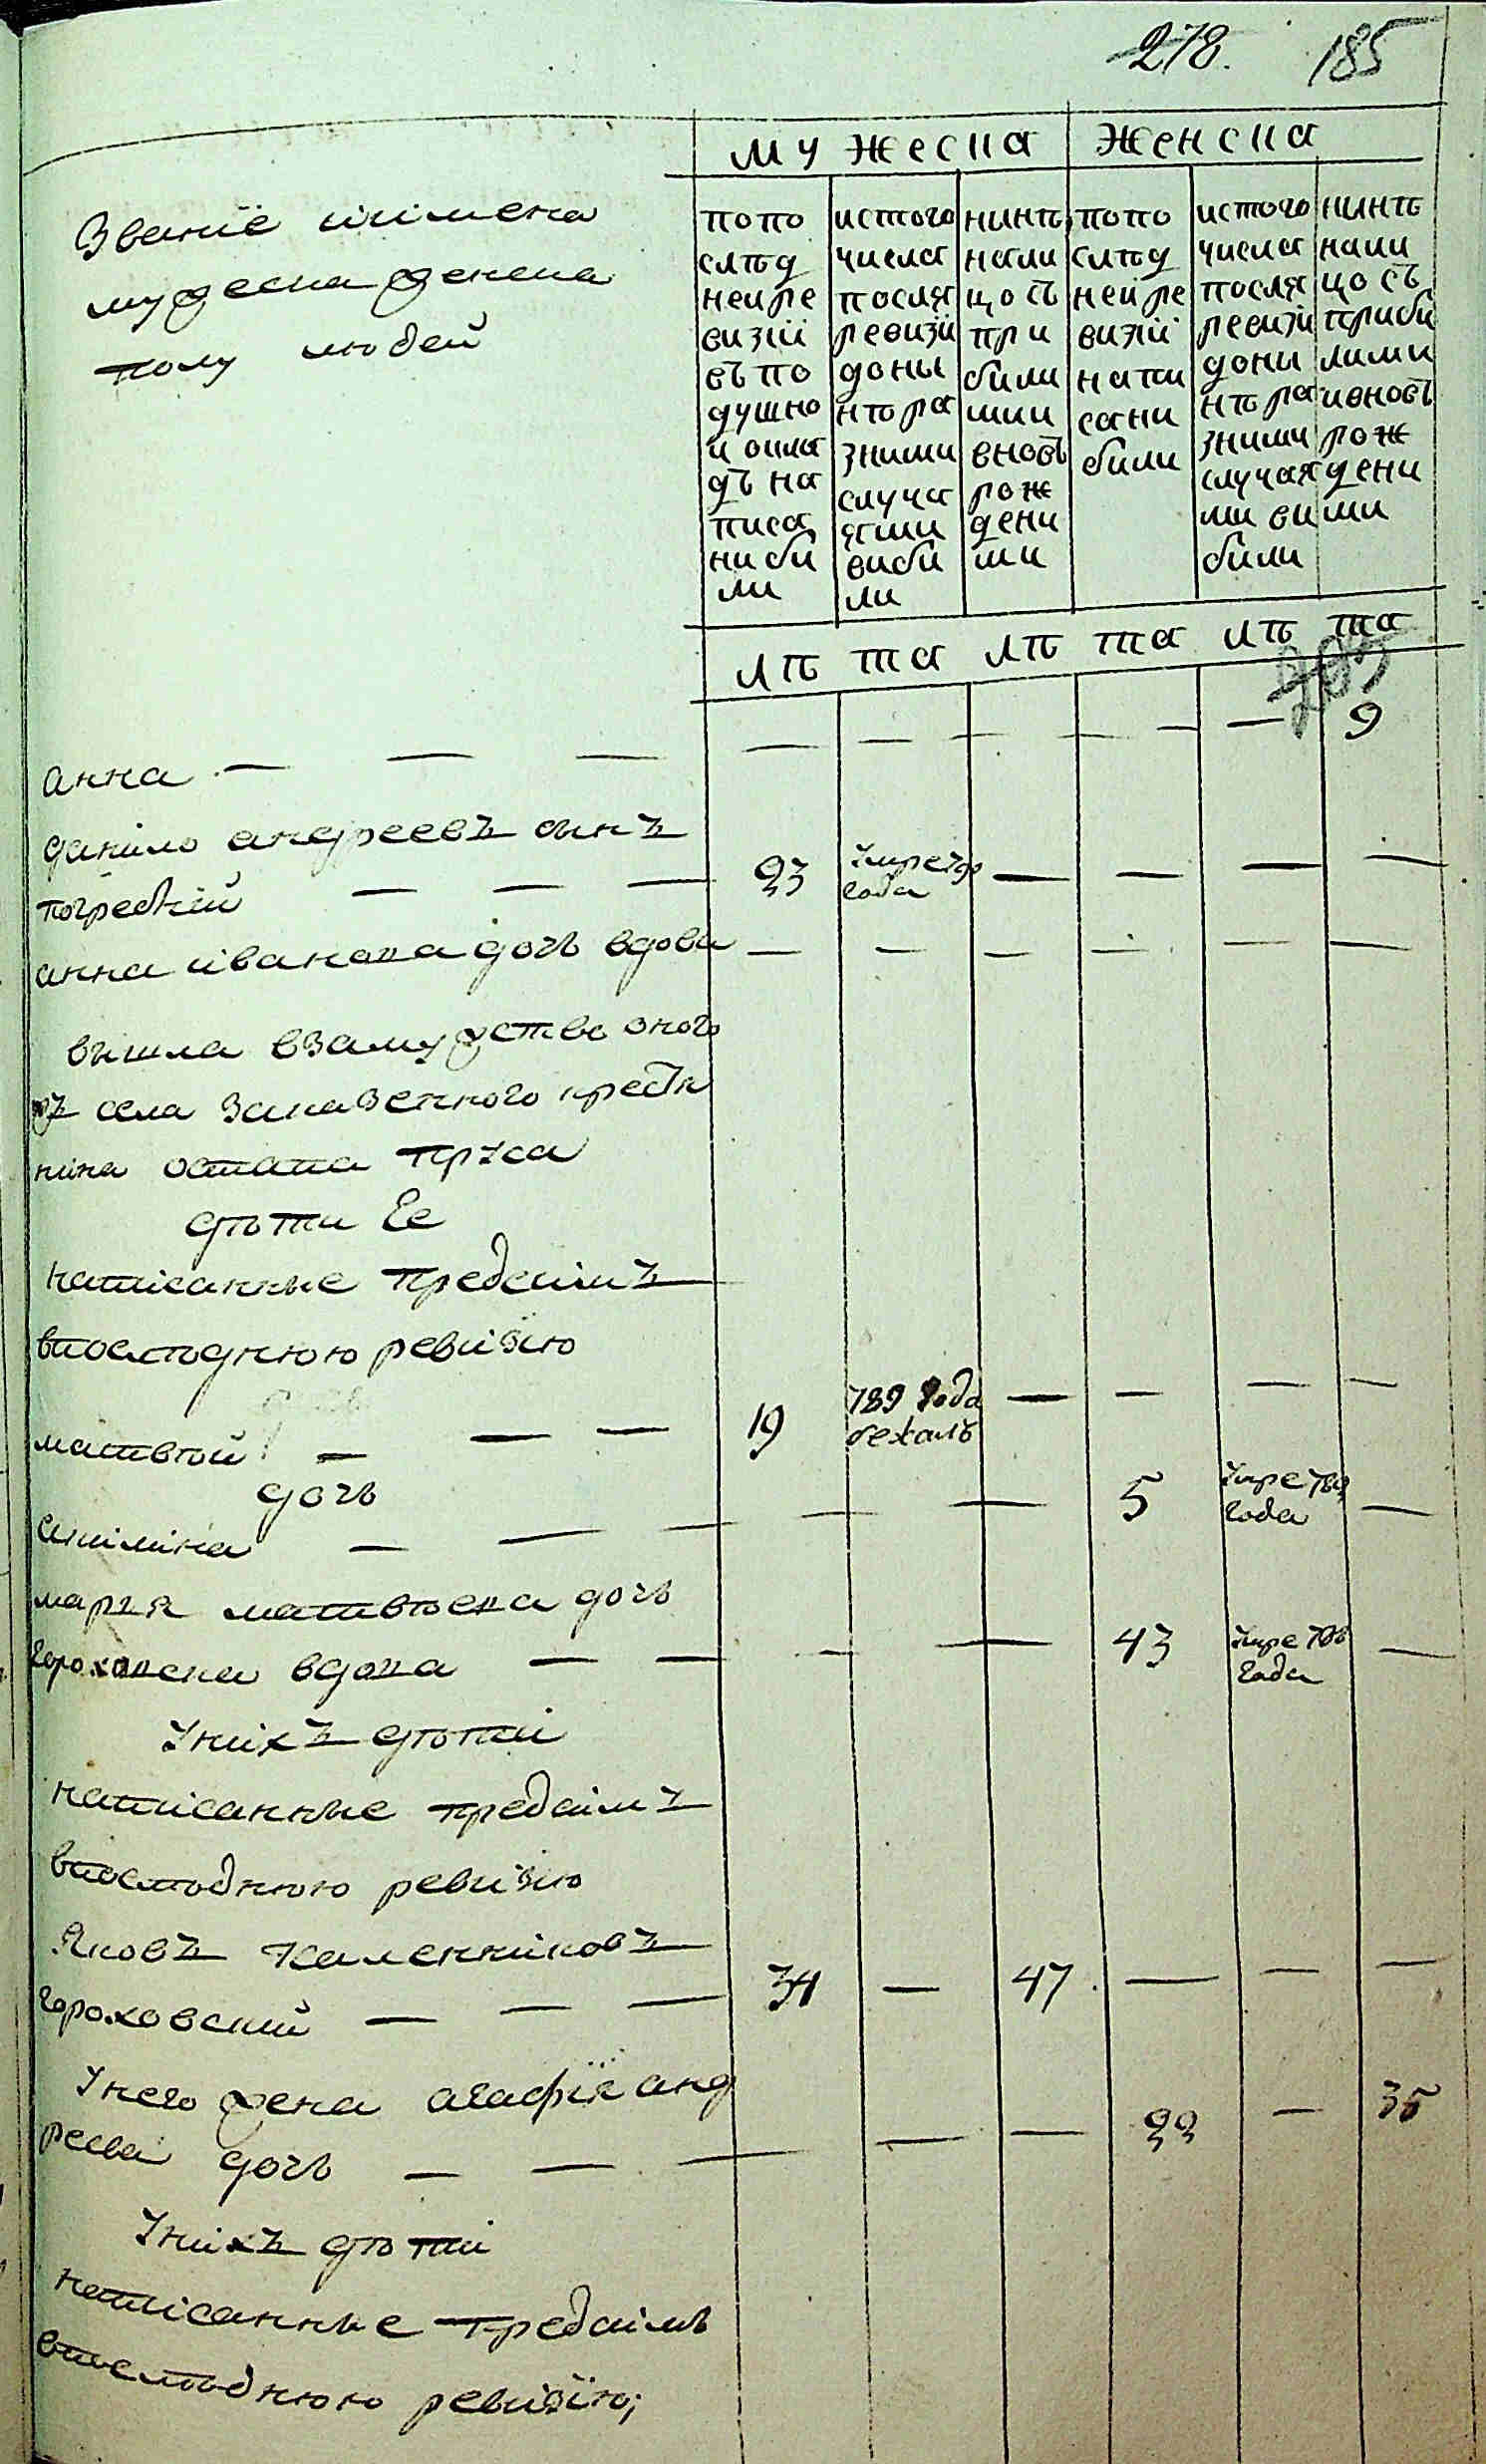 278. 185
мужеска женска
Званїе иїимена
мужеска женска
полу людей
попо
слѣд
неире
визїи
въпо
душно
и окла
дъ на
писа
ни би
ли
истого
числа
посля
ревизїи
доны
нѣ ра
зними
случа
ями
виби
ли
нинѣ
нали
цо съ
при
били
ми
вновъ
рож
дени
ми
попо
слѣд
ней ре
визїи
напи
сани
били
истого
числа
посля
ревизїи
дони
нѣ ра
зними
случая
ми ви
били
нинѣ
нали
цо съ
приби
лими
ивновъ
рож
дени
ми
лѣ та лѣ та лѣ та
анна — — — — — — — — 9
данило андреевъ сынъ
погребній — — — 23 Умре 790 года — — — —
анна иванова дочь вдова — — — — — —
вышла взамужство оного
жъ села заказенного крестя
нина остапа пруса
дѣти Ее
написанные предсимъ
впослѣднюю ревизїю
матвѣй — — — 19 789 года бежалъ — — — —
дочь
акилина — — — — — 5 Умре 789 года —
марья матвѣева дочь
гороховска вдова — — — — 43 Умре 788 года —
Унихъ дѣти
написанные предсимъ
впослѣднюю ревизию
Яковъ Каленниковъ
гороховский — — — 34 — 47 — — —
Унего жена агафїя анд
реева дочь — — — — — 22 — 35
Унихъ дѣти
написанные предсимъ
впослѣднюю ревизїю;